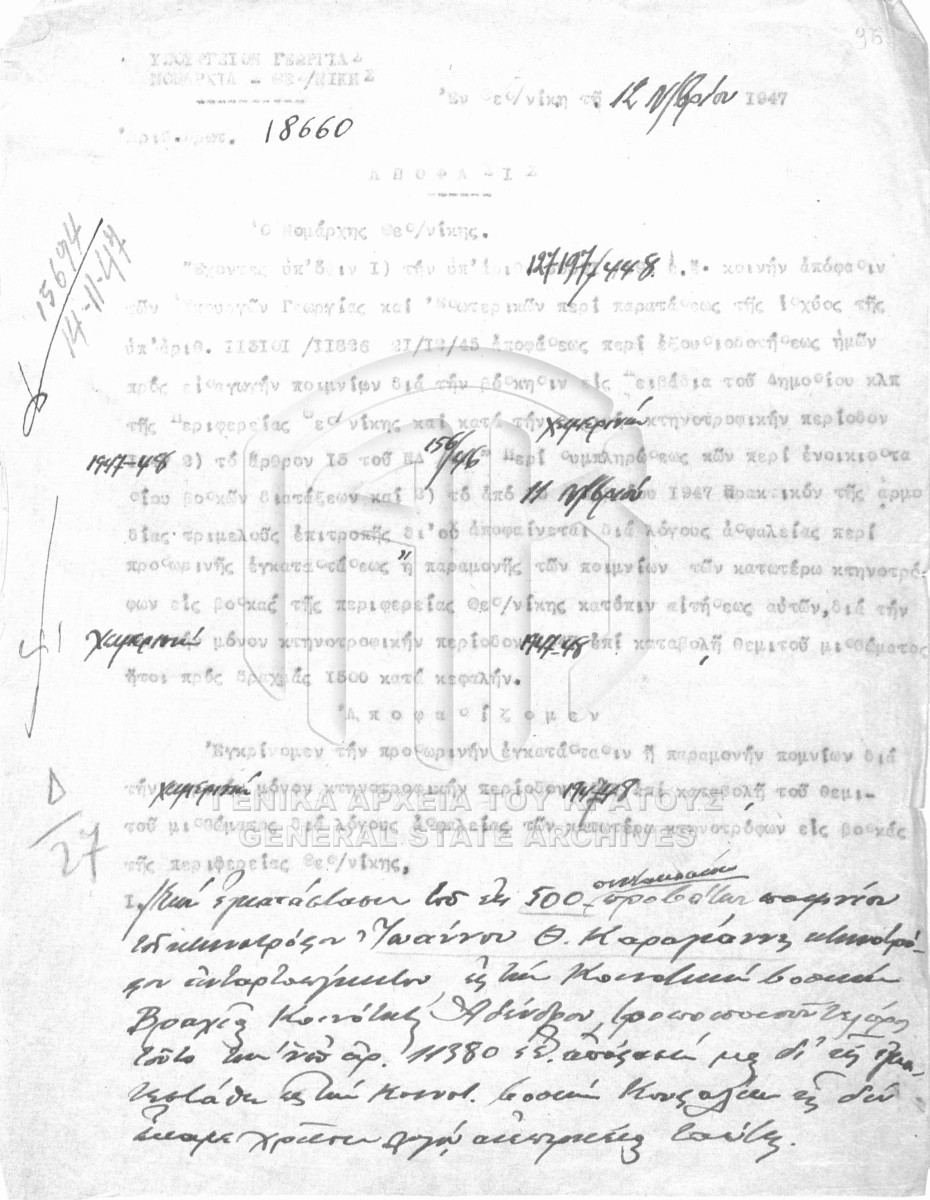 95
ΥΠΟΥΡΓΕΙΟΝ ΓΕΩΡΓΙΑΣ
ΝΟΜΑΡΧΙΑ - ΘΕΣ/ΝΙΚΗΣ
Ἐν Θεσ/νίκῃ τῇ 12 Ν/βρίου 1947
Ἀριθ.πρωτ. 18660
ΑΠΟΦΑΣΙΣ
Ὁ Νομάρχης Θεσ/νίκης.
15694
14-11-47
Ἔχοντες ὑπ'ὄψιν Ι) τήν ὑπ'ἀριθ. 127197/448 ἐ.ἔ. κοινήν ἀπόφασιν
τῶν Ὑπουργῶν Γεωργίας καί Ἐσωτερικῶν περί παρατάσεως τῆς ἰσχύος τῆς
ὑπ'ἀριθ. ΙΙ3ΙΟΙ /ΙΙ836 2Ι/Ι2/45 ἀποφάσεως περί ἐξουσιοδοτήσεως ἡμῶν
πρός εἰσαγωγήν ποιμνίων διά τήν βόσκησιν εἰς λειβάδια τοῦ Δημοσίου κλπ
τῆς περιφερείας Θεσ/νίκης καί κατά τήν χειμερινήν κτηνοτροφικήν περίοδον
1947-48 2) τό ἄρθρον Ι5 τοῦ ΝΔ 156/46 " περί συμπληρώσεως κῶν περί ἐνοικιοστα
σίου βοσκῶν διατάξεων καί 3) τό ἀπό 11 Ν/βρίου 1947 πρακτικόν τῆς ἁρμο
δίας τριμελοῦς ἐπιτροπῆς δι'οὗ ἀποφαίνεται διά λόγους ἀσφαλείας περί
προσωρινῆς ἐγκαταστάσεως "ἤ παραμονῆς τῶν ποιμνίων τῶν κατωτέρω κτηνοτρό
φων εἰς βοσκάς τῆς περιφερείας Θεσ/νίκης κατόπιν αἰτήσεως αὐτῶν, διά τήν
χειμερινήν μόνον κτηνοτροφικήν περίοδον 1947-48 ἐπί καταβολῇ θεμιτοῦ μισθώματος
ἤτοι πρός δραχμάς Ι500 κατά κεφαλήν.
Ἀποφασίζομεν
Ἐγκρίνομεν τήν προσωρινήν ἐγκατάστασιν ἤ παραμονήν πομνίων διά
τήν χειμερινήν μόνον κτηνοτροφικήν περίοδον 1947-48 ἐπί καταβολῇ τοῦ θεμι-
τοῦ μισθώματος διά λόγους ἀσφαλείας τῶν κατωτέρω κτηνοτρόφων εἰς βοσκάς
τῆς περιφερείας Θεσ/νίκης,
Δ/27
ΓΕΝΙΚΑ ΑΡΧΕΙΑ ΤΟΥ ΚΡΑΤΟΥΣ
GENERAL STATE ARCHIVES
Ι. Τήν ἐγκατάστασιν τοῦ ἐκ 500 προβάτων ποιμνίου
τοῦ κτηνοτρόφου Ἰωάννου Θ. Καραγιάννη κτηνοτρό-
φου ἀνταρτοπλήκτου εἰς τήν Κοινοτικήν βοσκήν
Κοινότητος Ἀδένδρου,
τήν ὑπ' ἀρ. 11380 ἐ.ἔ. ἀπόφασιν μας δι' ἧς ἐγκα-
τεστάθη εἰς τήν Κοινοτ. βοσκήν ἧς δέν
ἔκαμε χρῆσιν λόγῳ ἀνεπαρκείας ταύτης.